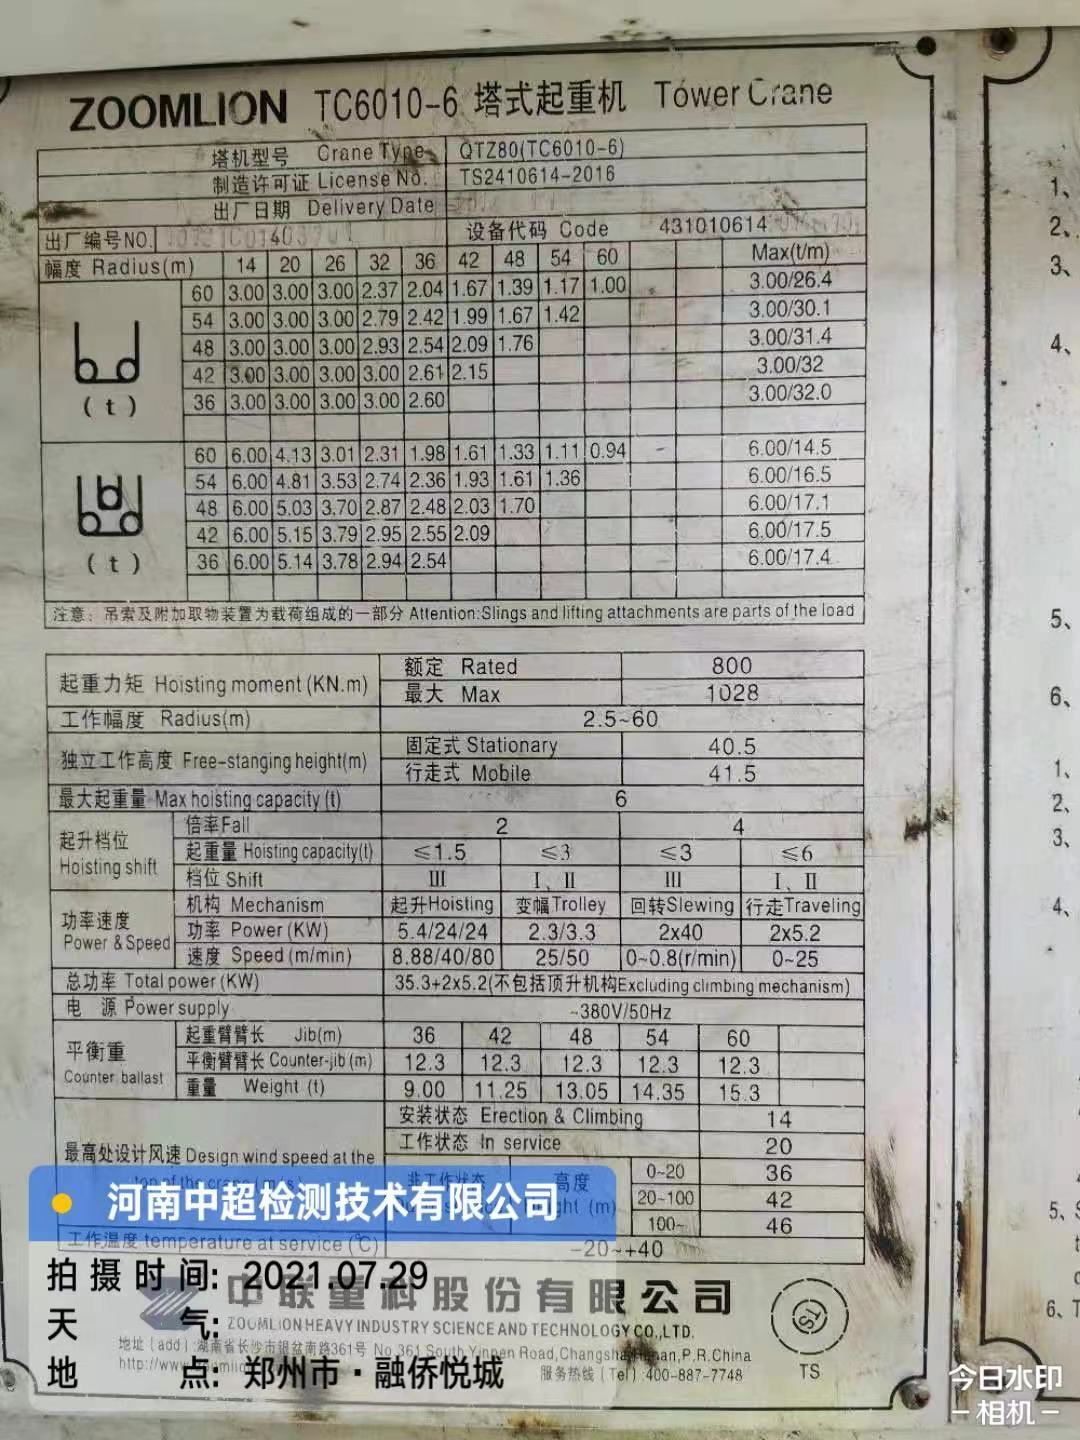 ZOOMLION TC6010-6 塔式起重机 Tower Crane
塔机型号 Crane Type QTZ80(TC6010-6)
制造许可证 License No. TS2410614-2016
出厂日期 Delivery Date
出厂编号NO. 设备代码 Code 431010614
幅度 Radius(m) 14 20 26 32 36 42 48 54 60 Max(t/m)
60 3.00 3.00 3.00 2.37 2.04 1.67 1.39 1.17 1.00 3.00/26.4
54 3.00 3.00 3.00 2.79 2.42 1.99 1.67 1.42 3.00/30.1
48 3.00 3.00 3.00 2.93 2.54 2.09 1.76 3.00/31.4
42 3.00 3.00 3.00 3.00 2.61 2.15 3.00/32
36 3.00 3.00 3.00 3.00 2.60 3.00/32.0
(t)
60 6.00 4.13 3.01 2.31 1.98 1.61 1.33 1.11 0.94 6.00/14.5
54 6.00 4.81 3.53 2.74 2.36 1.93 1.61 1.36 6.00/16.5
48 6.00 5.03 3.70 2.87 2.48 2.03 1.70 6.00/17.1
42 6.00 5.15 3.79 2.95 2.55 2.09 6.00/17.5
36 6.00 5.14 3.78 2.94 2.54 6.00/17.4
(t)
注意：吊索及附加取物装置为载荷组成的一部分 Attention:Slings and lifting attachments are parts of the load
起重力矩 Hoisting moment(KN.m) 额定 Rated 800
最大 Max 1028
工作幅度 Radius(m) 2.5~60
独立工作高度 Free-stanging height(m) 固定式 Stationary 40.5
行走式 Mobile 41.5
最大起重量 Max hoisting capacity (t) 6
起升档位 Hoisting shift 倍率Fall 2 4
起重量 Hoisting capacity(t) ≤1.5 ≤3 ≤3 ≤6
档位 Shift III I、II III I、II
功率速度 Power & Speed 机构 Mechanism 起升Hoisting 变幅Trolley 回转Slewing 行走Traveling
功率 Power (KW) 5.4/24/24 2.3/3.3 2x40 2x5.2
速度 Speed (m/min) 8.88/40/80 25/50 0~0.8(r/min) 0~25
总功率 Total power (KW) 35.3+2x5.2(不包括顶升机构Excluding climbing mechanism)
电 源 Power supply ~380V/50Hz
平衡重 Counter ballast 起重臂臂长 Jib(m) 36 42 48 54 60
平衡臂臂长 Counter-jib (m) 12.3 12.3 12.3 12.3 12.3
重量 Weight (t) 9.00 11.25 13.05 14.35 15.3
最高处设计风速 Design wind speed at the 安装状态 Erection & Climbing 14
工作状态 In service 20
非工作状态 高度 (m) 0~20 36
20~100 42
100~ 46
工作温度 temperature at service (℃) -20~+40
河南中超检测技术有限公司
拍摄时间: 2021.07.29
天 气:
地 点: 郑州市·融侨悦城
中联重科股份有限公司
ZOOMLION HEAVY INDUSTRY SCIENCE AND TECHNOLOGY CO.,LTD.
地址(add):湖南省长沙市银盆南路361号 No.361 South Yinpen Road,Changsha,Hunan,P.R.China
服务热线(Tel):400-887-7748
TS
今日水印
-相机-
1、
2、
3、
4、
5、
6、
1、
2、
3、
4、
5、S
6、T